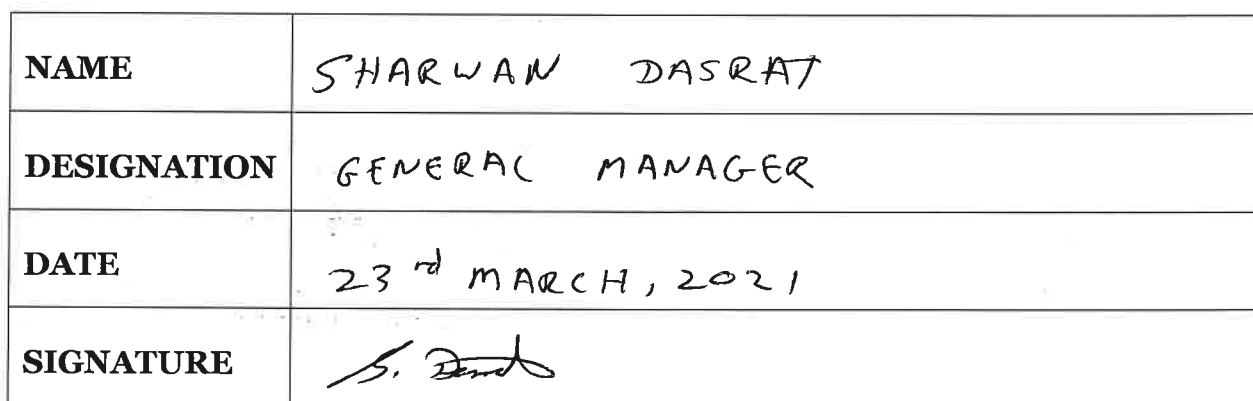 NAME SHARWAN DASRAT
DESIGNATION GENERAL MANAGER
DATE 23rd MARCH, 2021
SIGNATURE S.